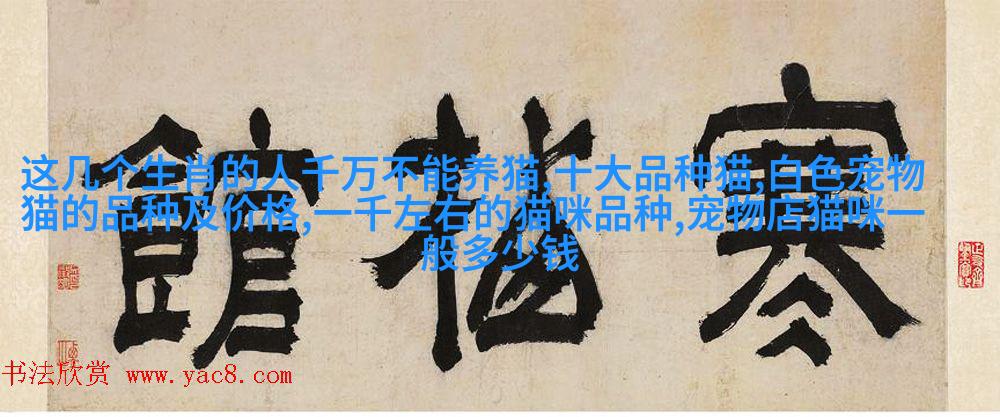 寒梅館
这几个生肖的人千万不能养猫,十大品种猫,白色宠物
猫的品种及价格,一千左右的猫咪品种,宠物店猫咪一
般多少钱
书法欣赏 www.yac8.com